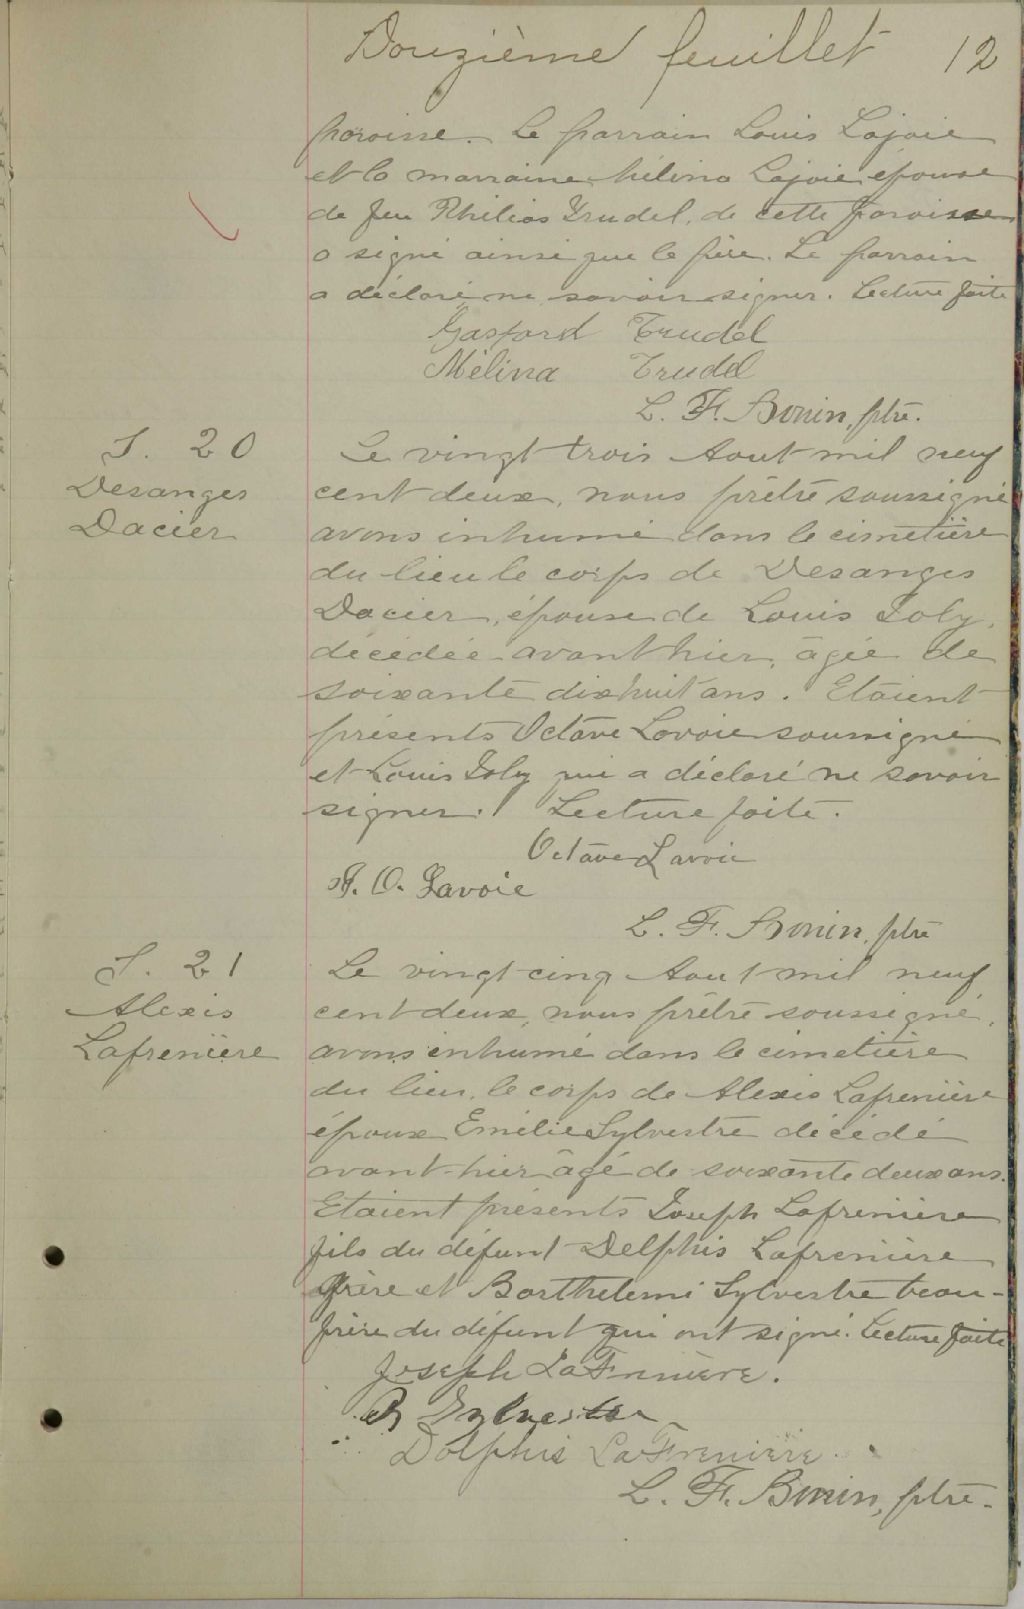 Douzième feuillet 12
paroisse. Le parrain Louis Lajoie
et la marraine Mélina Lajoie épouse
de feu Philias Trudel, de cette paroisse
a signé ainsi que le père. Le parrain
a déclaré ne savoir signer. Lecture faite
Gaspard Trudel
Mélina Trudel
L. F. Bonin, ptre.
S. 20
Desanges
Dacier
Le vingt trois Aout mil neuf
cent deux, nous prêtre soussigné
avons inhumé dans le cimetière
du lieu le corps de Desanges
Dacier, épouse de Louis Joly,
décédée avant hier, âgée de
soixante dixhuit ans. Etaient
présents Octave Lavoie soussigné
et Louis Joly qui a déclaré ne savoir
signer. Lecture faite.
Octave Lavoie
J. O. Lavoie
L. F. Bonin, ptre
S. 21
Alexis
Lafrenière
Le vingt cinq Aout mil neuf
cent deux, nous prêtre soussigné,
avons inhumé dans le cimetière
du lieu, le corps de Alexis Lafrenière
époux Emélie Sylvestre décédé
avant-hier âgé de soixante deux ans.
Etaient présents Joseph Lafrenière
fils du défunt Delphis Lafrenière
frère et Barthelemi Sylvestre beau-
frère du défunt qui ont signé. Lecture faite
Joseph LaFrnière.
B Sylvestre
Dolphis LaFrenière
L. F. Bonin, ptre.